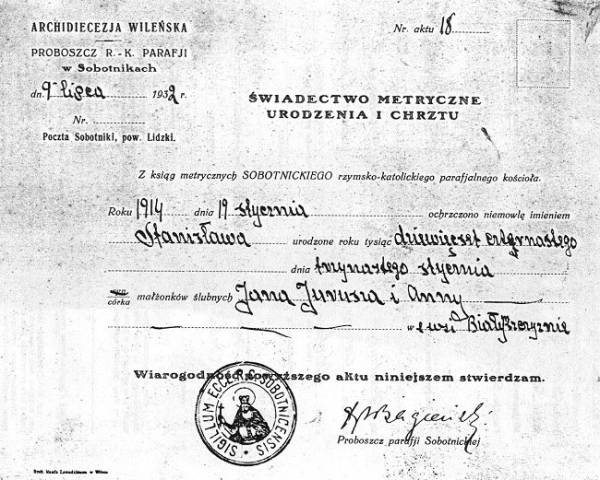 ARCHIDIECEZJA WILEŃSKA
PROBOSZCZ R.-K. PARAFJI
w Sobotnikach
dn. 9 lipca 1932 r.
Nr.
Poczta Sobotniki, pow. Lidzki.
Nr. aktu 18
ŚWIADECTWO METRYCZNE
URODZENIA I CHRZTU
Z ksiąg metrycznych SOBOTNICKIEGO rzymsko-katolickiego parafjalnego kościoła.
Roku 1914 dnia 19 stycznia ochrzczono niemowlę imieniem
Stanisława urodzone roku tysiąc dziewięćset czternastego
dnia trzynastego stycznia
syn
córka małżonków ślubnych Jana Jurusza i Anny
w e wsi
Wiarogodność powyższego aktu niniejszem stwierdzam.
SIGILLUM ECCL. R. C. SOBOTNICENSIS
Proboszcz parafji Sobotnickiej
Druk Józefa Zawadzkiego w Wilnie